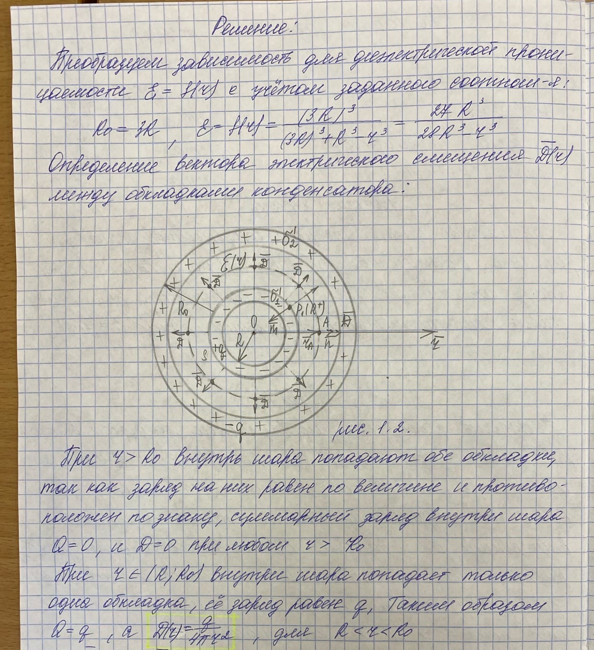 Решение:
Преобразуем зависимость для диэлектрической прони-
цаемости ε = f(r) с учётом заданного соотнош-я:
R₀ = 3R, ε = f(r) = (3R)³ / ((3R)³ + R³ - r³) = 27R³ / (28R³ - r³)
Определение вектора электрического смещения D(r)
между обкладками конденсатора:
+σ₂'
ε(r)
D
D
D
-σ₁'
P₁(R⁺)
R₀
O
A
D
R
n
n
r
D
S
+q
D
D
D
-q
рис. 1.2.
При r > R₀ внутрь шара попадают обе обкладки,
так как заряд на них равен по величине и противо-
положен по знаку, суммарный заряд внутри шара
Q = 0, и D = 0 при любом r > R₀
При r ∈ (R; R₀) внутри шара попадает только
одна обкладка, её заряд равен q, Таким образом
Q = q, а D(r) = q / 4πr², для R < r < R₀